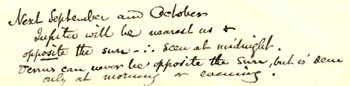 Next September and October
Jupiter will be nearest us &
opposite the sun ∴ seen at midnight.
Venus can never be opposite the Sun, but is seen
only at morning or evening.